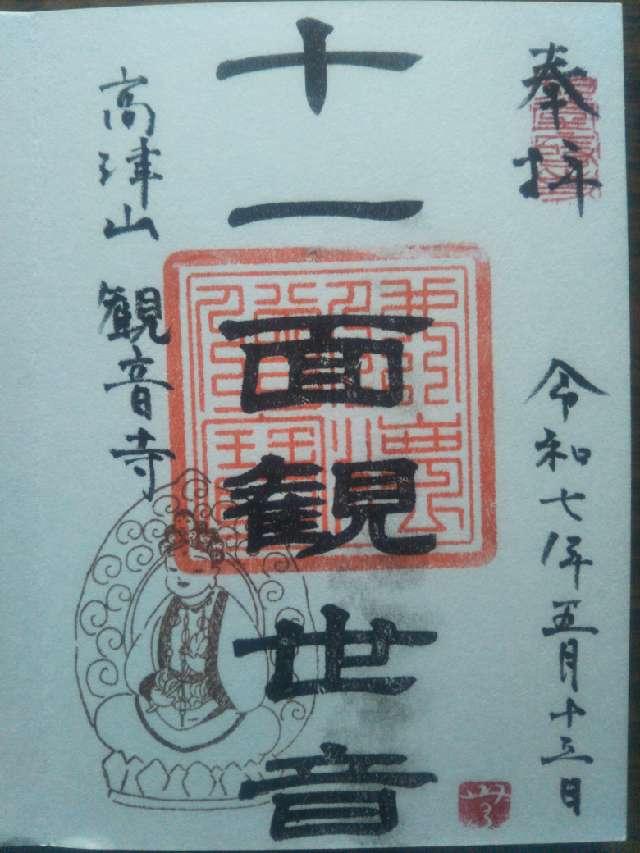 奉拝
令和七年五月十三日
十一面観世音
高津山 観音寺